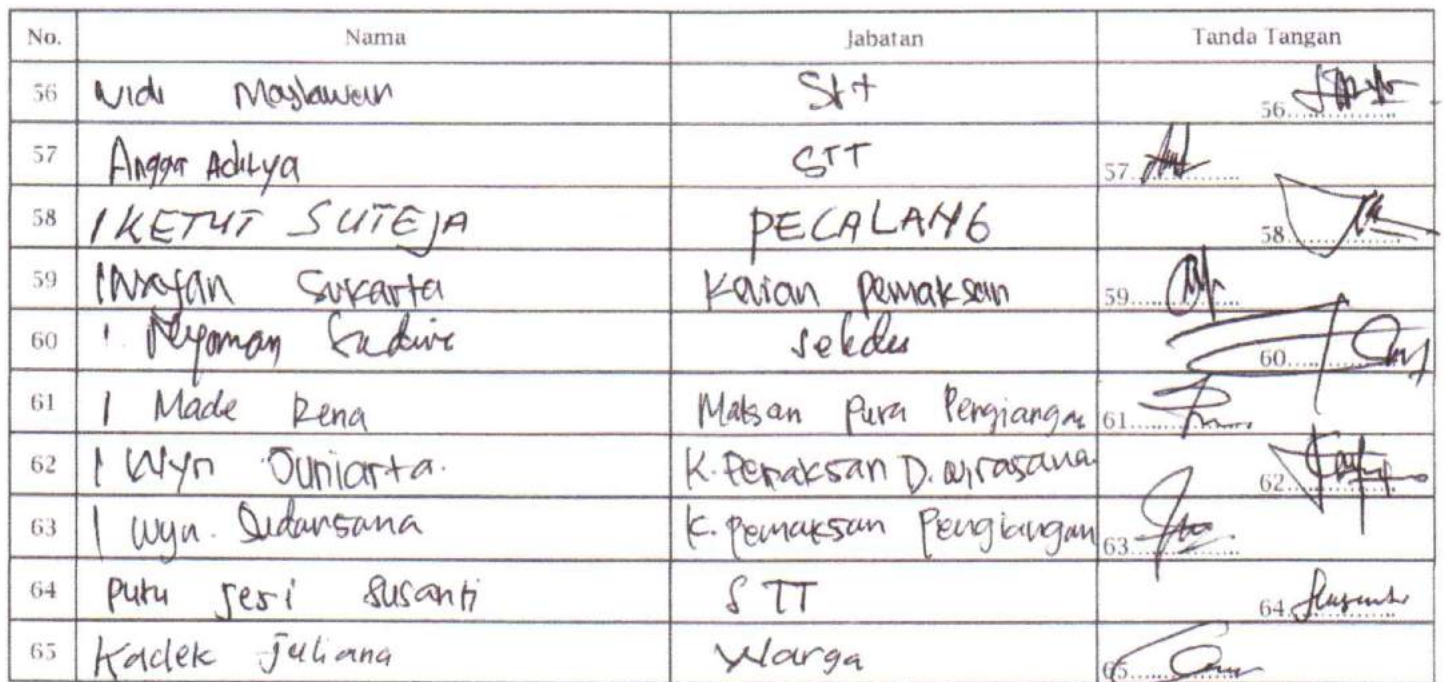 No. Nama Jabatan Tanda Tangan
56 Widi Maylawan Stt 56
57 Angga Aditya STT 57
58 I KETUT SUTEJA PECALANG 58
59 I Wayan Sukarta Kelian Pemaksan 59
60 I Nyoman Sekdes 60
61 I Made Rena Maksan Pura Pengiangan 61
62 I Wyn Juniarta. K. Pemaksan D. Wirasana 62
63 I Wyn. Sudarsana K. Pemaksan Pengiangan 63
64 Putu Jesi Susanti STT 64
65 Kadek Juliana Warga 65